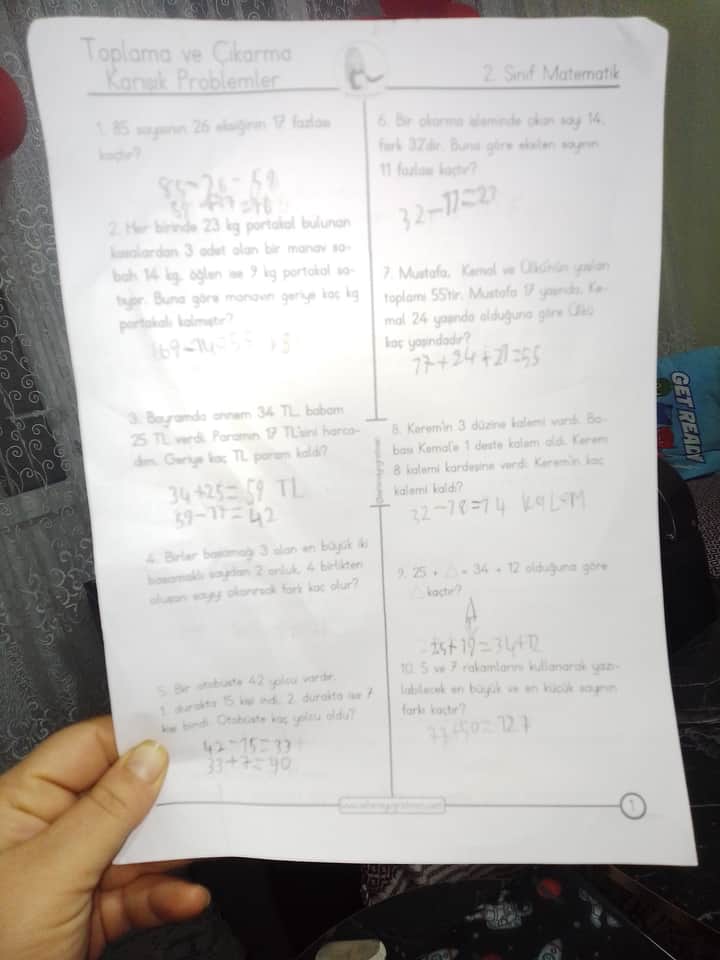 Toplama ve Çıkarma
Karışık Problemler
2. Sınıf Matematik
1. 85 sayısının 26 eksiğinin 17 fazlası
kaçtır?
85-26=59
59+17=76
2. Her birinde 23 kg portakal bulunan
kasalardan 3 adet alan bir manav sa-
bah 14 kg, öğlen ise 9 kg portakal sa-
tıyor. Buna göre manavın geriye kaç kg
portakalı kalmıştır?
169-14
3. Bayramda annem 34 TL, babam
25 TL verdi. Paramın 17 TL'sini harca-
dım. Geriye kaç TL param kaldı?
34+25=59 TL
59-17=42
4. Birler basamağı 3 olan en büyük iki
basamaklı sayıdan 2 onluk, 4 birlikten
oluşan sayıyı çıkarırsak fark kaç olur?
5. Bir otobüste 42 yolcu vardır.
1. durakta 15 kişi indi, 2. durakta ise 7
kişi bindi. Otobüste kaç yolcu oldu?
42-15=33
33+7=40
6. Bir çıkarma işleminde çıkan sayı 14,
fark 32'dir. Buna göre eksilen sayının
11 fazlası kaçtır?
32-11=23
7. Mustafa, Kemal ve Ülkü'nün yaşları
toplamı 55'tir. Mustafa 17 yaşında, Ke-
mal 24 yaşında olduğuna göre Ülkü
kaç yaşındadır?
17+24+21=55
8. Kerem'in 3 düzine kalemi vardı. Ba-
bası Kemal'e 1 deste kalem aldı. Kerem
8 kalemi kardeşine verdi. Kerem'in kaç
kalemi kaldı?
32-18=14 KALEM
9. 25 + △ = 34 + 12 olduğuna göre
△ kaçtır?
25+19=34+12
10. 5 ve 7 rakamlarını kullanarak yazı-
labilecek en büyük ve en küçük sayının
farkı kaçtır?
77+50=127
1
GET READY